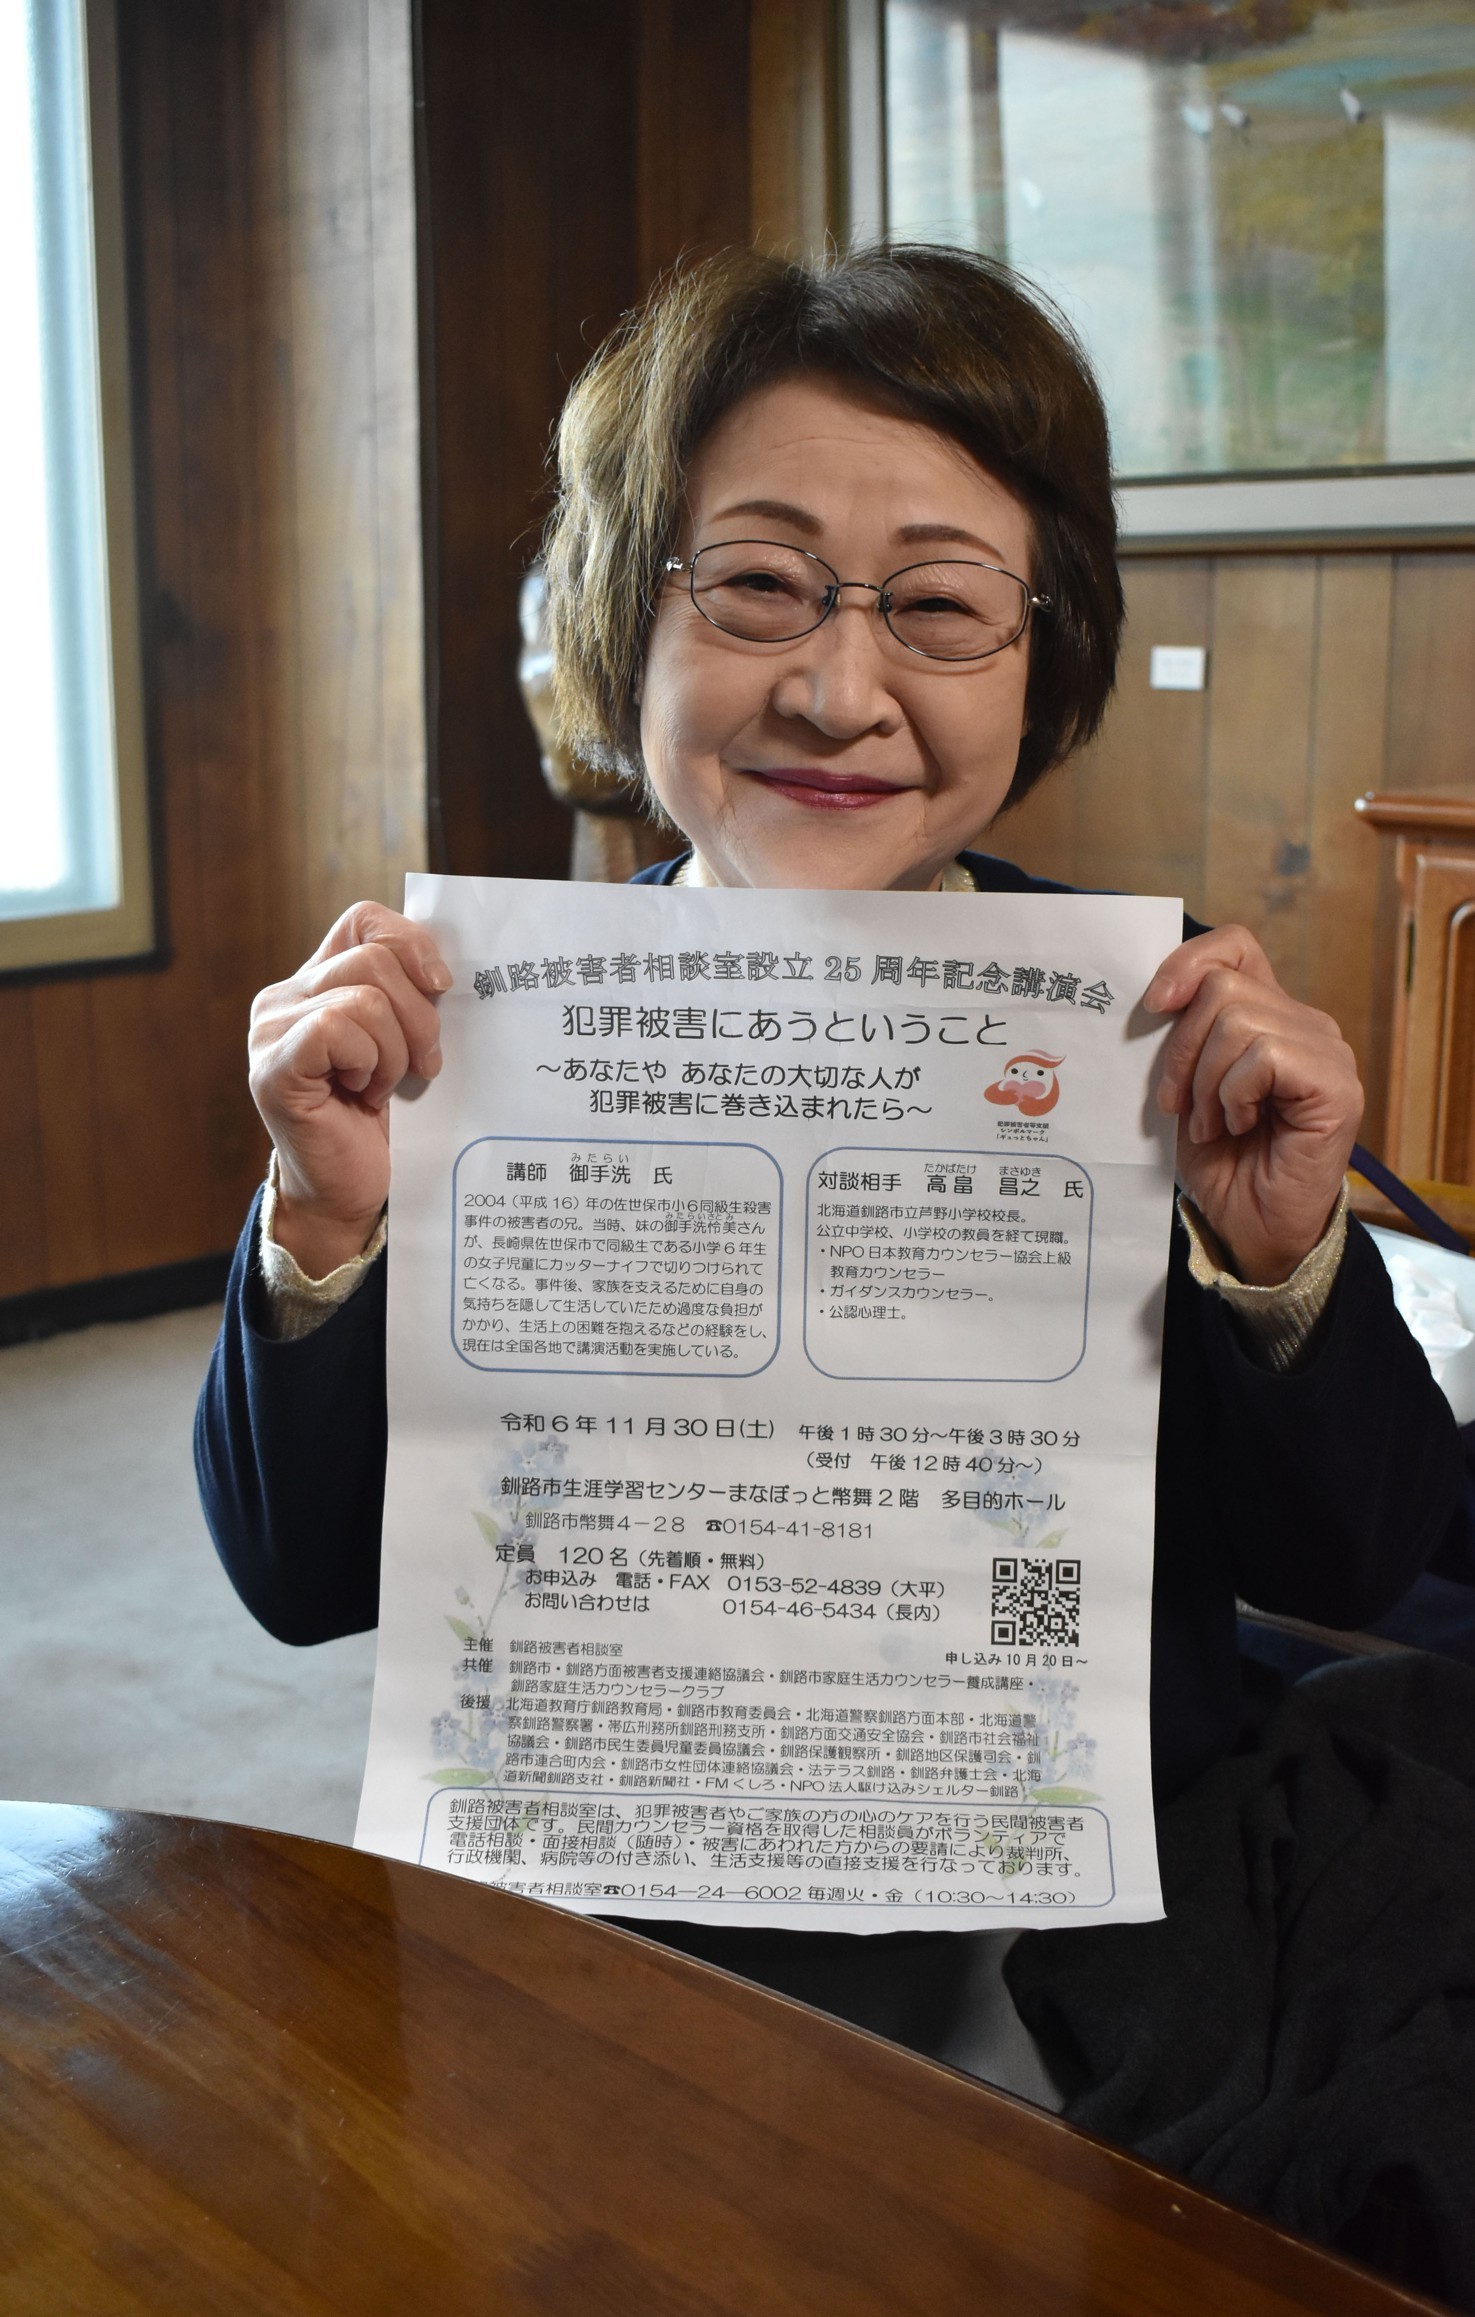 釧路被害者相談室設立25周年記念講演会
犯罪被害にあうということ
～あなたや あなたの大切な人が
犯罪被害に巻き込まれたら～
犯罪被害者等支援
シンボルマーク
「ギュっとちゃん」
みたらい
講師 御手洗 氏
2004（平成16）年の佐世保市小6同級生殺害
事件の被害者の兄。当時、妹の御手洗怜美さん
みたらいさとみ
が、長崎県佐世保市で同級生である小学6年生
の女子児童にカッターナイフで切りつけられて
亡くなる。事件後、家族を支えるために自身の
気持ちを隠して生活していたため過度な負担が
かかり、生活上の困難を抱えるなどの経験をし、
現在は全国各地で講演活動を実施している。
たかばたけ まさゆき
対談相手 高畠 昌之 氏
北海道釧路市立芦野小学校校長。
公立中学校、小学校の教員を経て現職。
・NPO日本教育カウンセラー協会上級
教育カウンセラー
・ガイダンスカウンセラー。
・公認心理士。
令和6年11月30日(土) 午後1時30分～午後3時30分
（受付 午後12時40分～）
釧路市生涯学習センターまなぼっと幣舞2階 多目的ホール
釧路市幣舞4－28 ☎0154-41-8181
定員 120名（先着順・無料）
お申込み 電話・FAX 0153-52-4839（大平）
お問い合わせは 0154-46-5434（長内）
申し込み10月20日～
主催 釧路被害者相談室
共催 釧路市・釧路方面被害者支援連絡協議会・釧路市家庭生活カウンセラー養成講座・
釧路家庭生活カウンセラークラブ
後援 北海道教育庁釧路教育局・釧路市教育委員会・北海道警察釧路方面本部・北海道警
察釧路警察署・帯広刑務所釧路刑務支所・釧路方面交通安全協会・釧路市社会福祉
協議会・釧路市民生委員児童委員協議会・釧路保護観察所・釧路地区保護司会・釧
路市連合町内会・釧路市女性団体連絡協議会・法テラス釧路・釧路弁護士会・北海
道新聞釧路支社・釧路新聞社・FMくしろ・NPO法人駆け込みシェルター釧路
釧路被害者相談室は、犯罪被害者やご家族の方の心のケアを行う民間被害者
支援団体です。民間カウンセラー資格を取得した相談員がボランティアで
電話相談・面接相談（随時）・被害にあわれた方からの要請により裁判所、
行政機関、病院等の付き添い、生活支援等の直接支援を行なっております。
被害者相談室☎0154―24―6002毎週火・金（10:30～14:30）